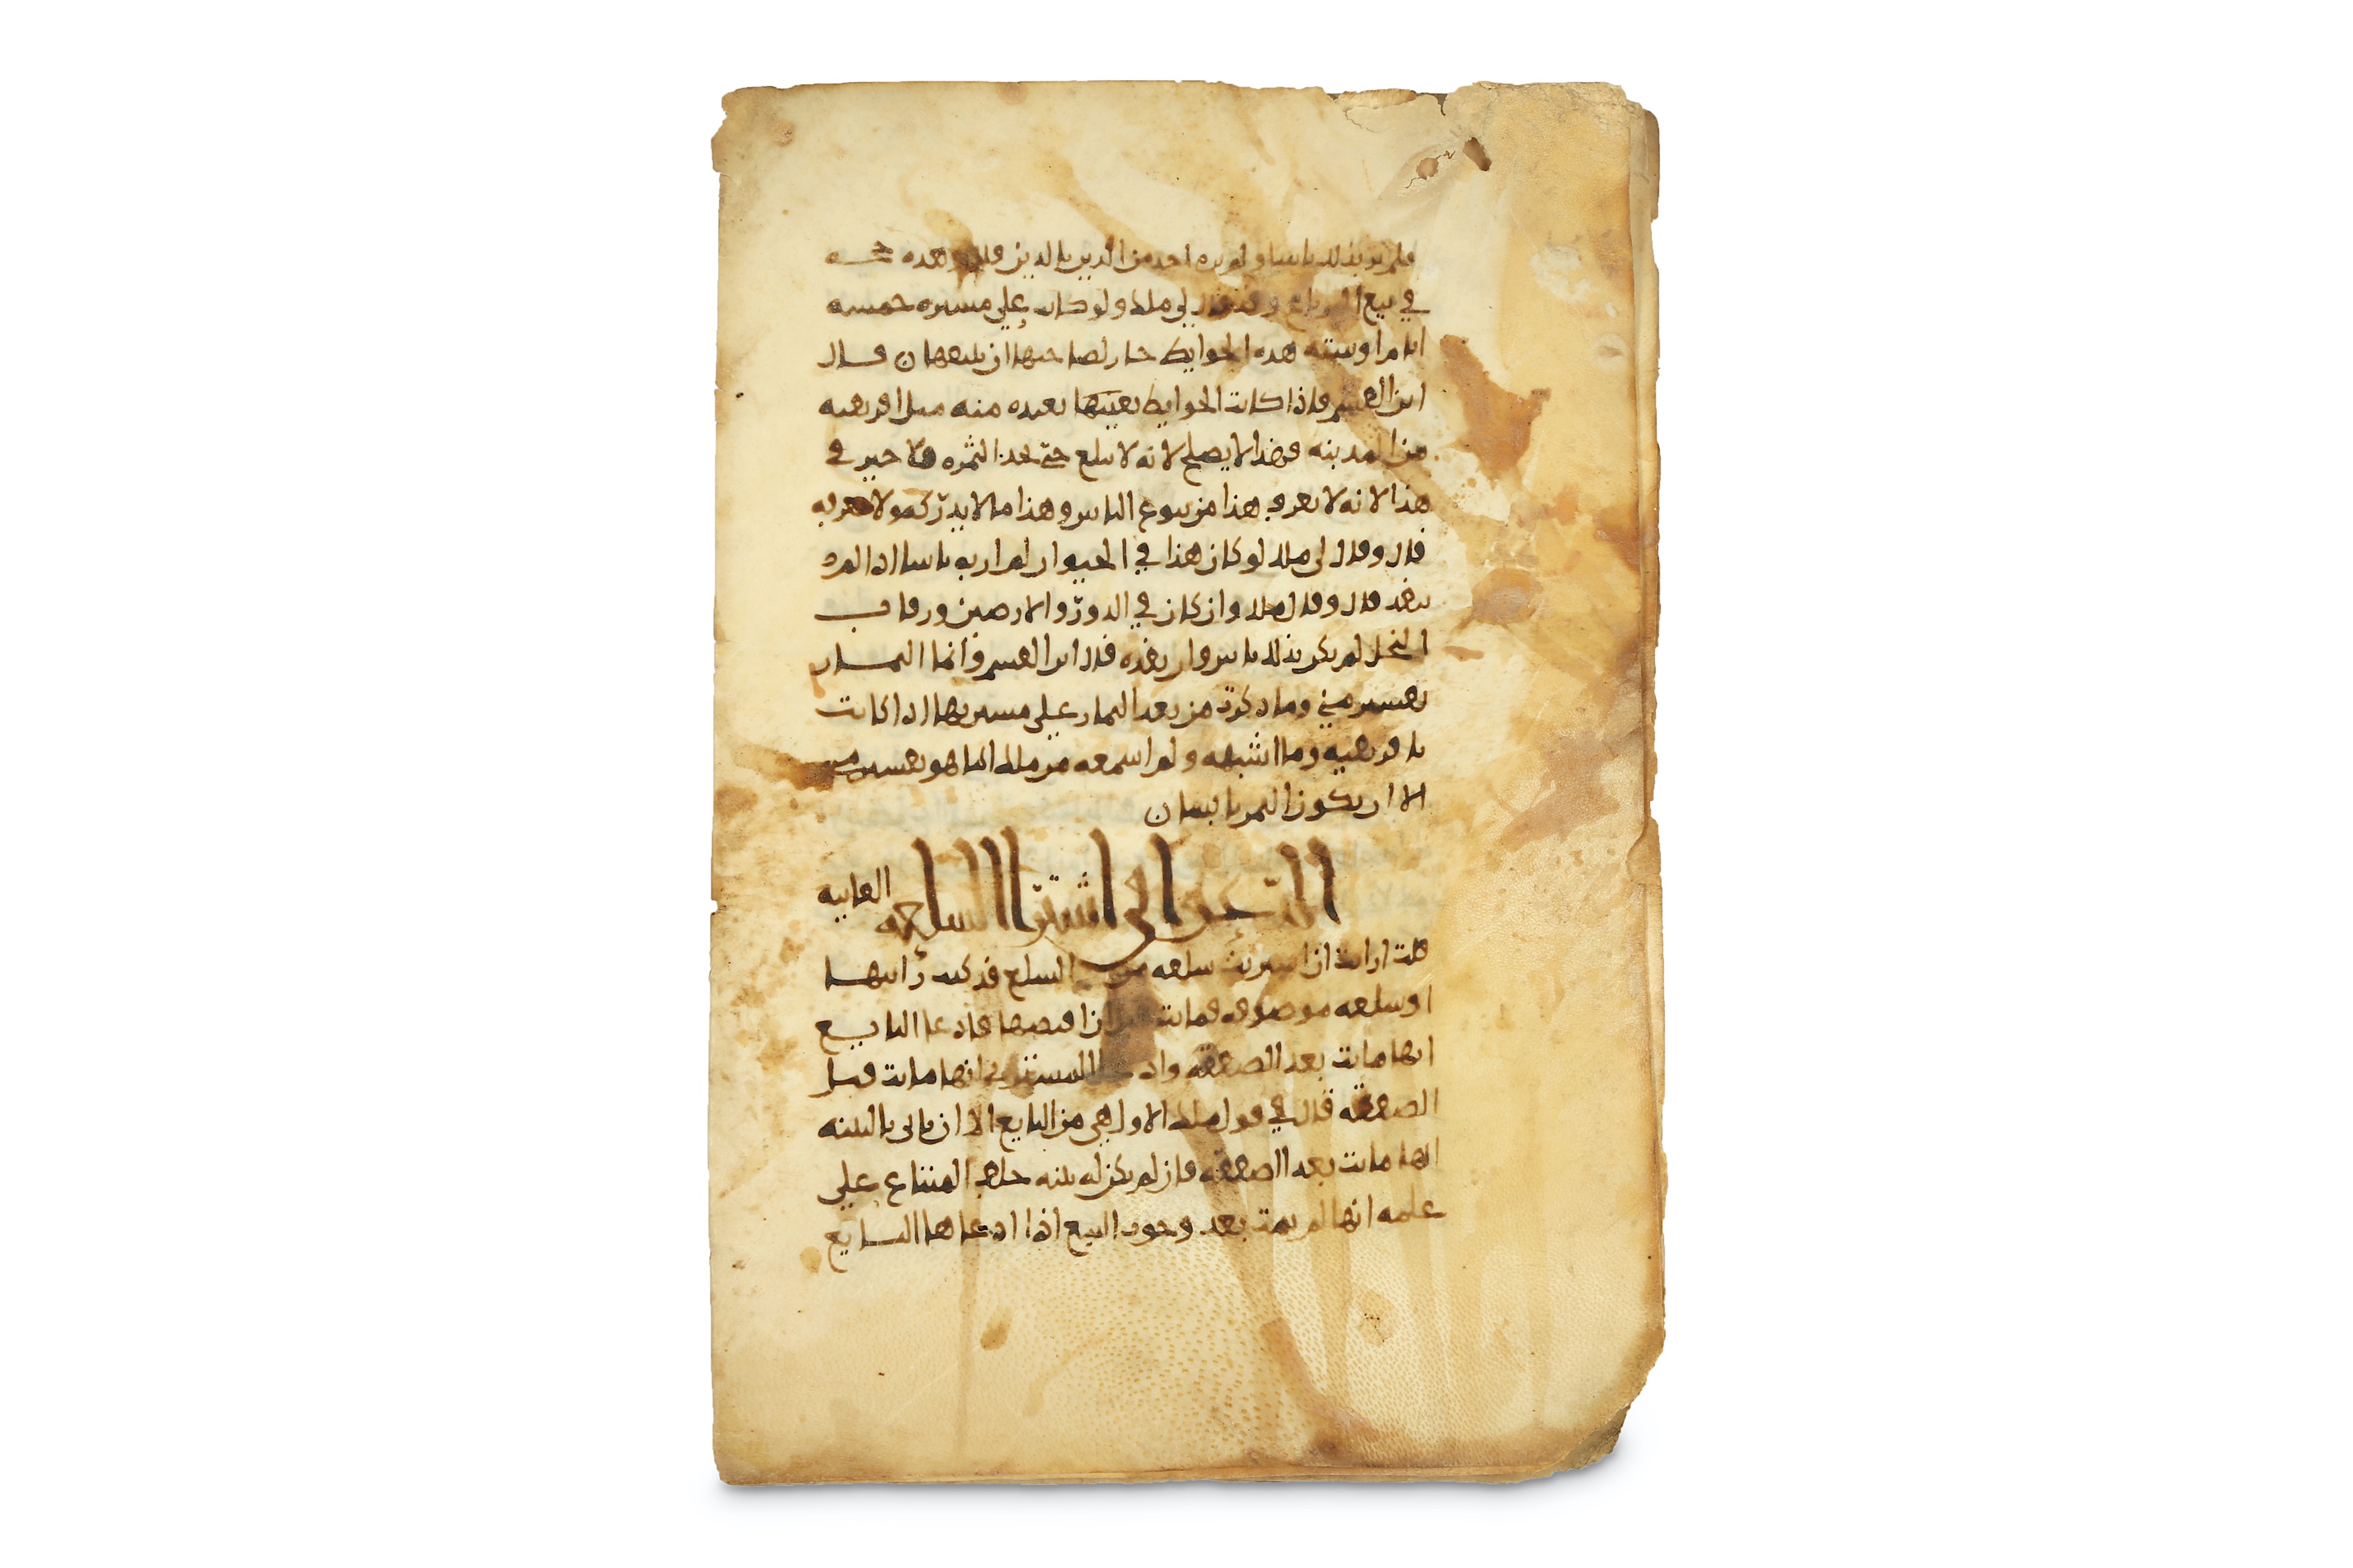 فلم ير بذلك باسا ولم يره احد من الدين بالدين فلك وهذه حجه
في بيع وقد قال لي ملك ولو كان على مسيره خمسه
ايام او سته هذه الحوايط جاز لصاحبها ان يبيعها ن قال
ابن القسم فاذا كانت الحوايط بعينها بعيده منه مثل افريقيه
من المدينه فهذا لا يصلح لانه لا يبلغ حتى تجد الثمره فلا خير في
هذا لانه لا يعرف هذا من بيوع الناس وهذا مما لا يدركه ولا يعرفه
قال وقال لي ملك لو كان هذا في الحيوان لم ار به باسا اذا لم
ينقد قال وقال ملك وان كان في الدور والارضين ورقاب
النخل لم يكن بذلك باس وان نقده قال ابن القسم وانما الثمار
تفسير مني وما ذكرت من بعد الثمار على مسيرتها اذا كانت
بافريقيه وما اشبهه ولم اسمعه من ملك انما هو تفسير مني
الا ان يكون الثمر يابسا ن
الدعوى في اشترا السلعه الغايبه
قلت ارايت ان اشتريت سلعه من السلع قد كنت رايتها
او سلعه موصوفه فماتت قبل ان اقبضها فادعا البايع
انها ماتت بعد الصفقه وادعا المشتري انها ماتت قبل
الصفقه قال في قول ملك الاول هي من البايع الا ان ياتي بالبينه
انها ماتت بعد الصفقه فان لم يكن له بينه حلف المبتاع على
علمه انها لم تمت بعد وجوب البيع اذا ادعاها البايع